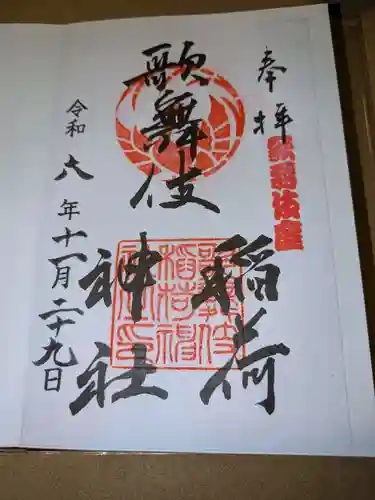 奉拝
歌舞伎座
歌舞伎
稲荷
神社
令和六年十一月二十九日